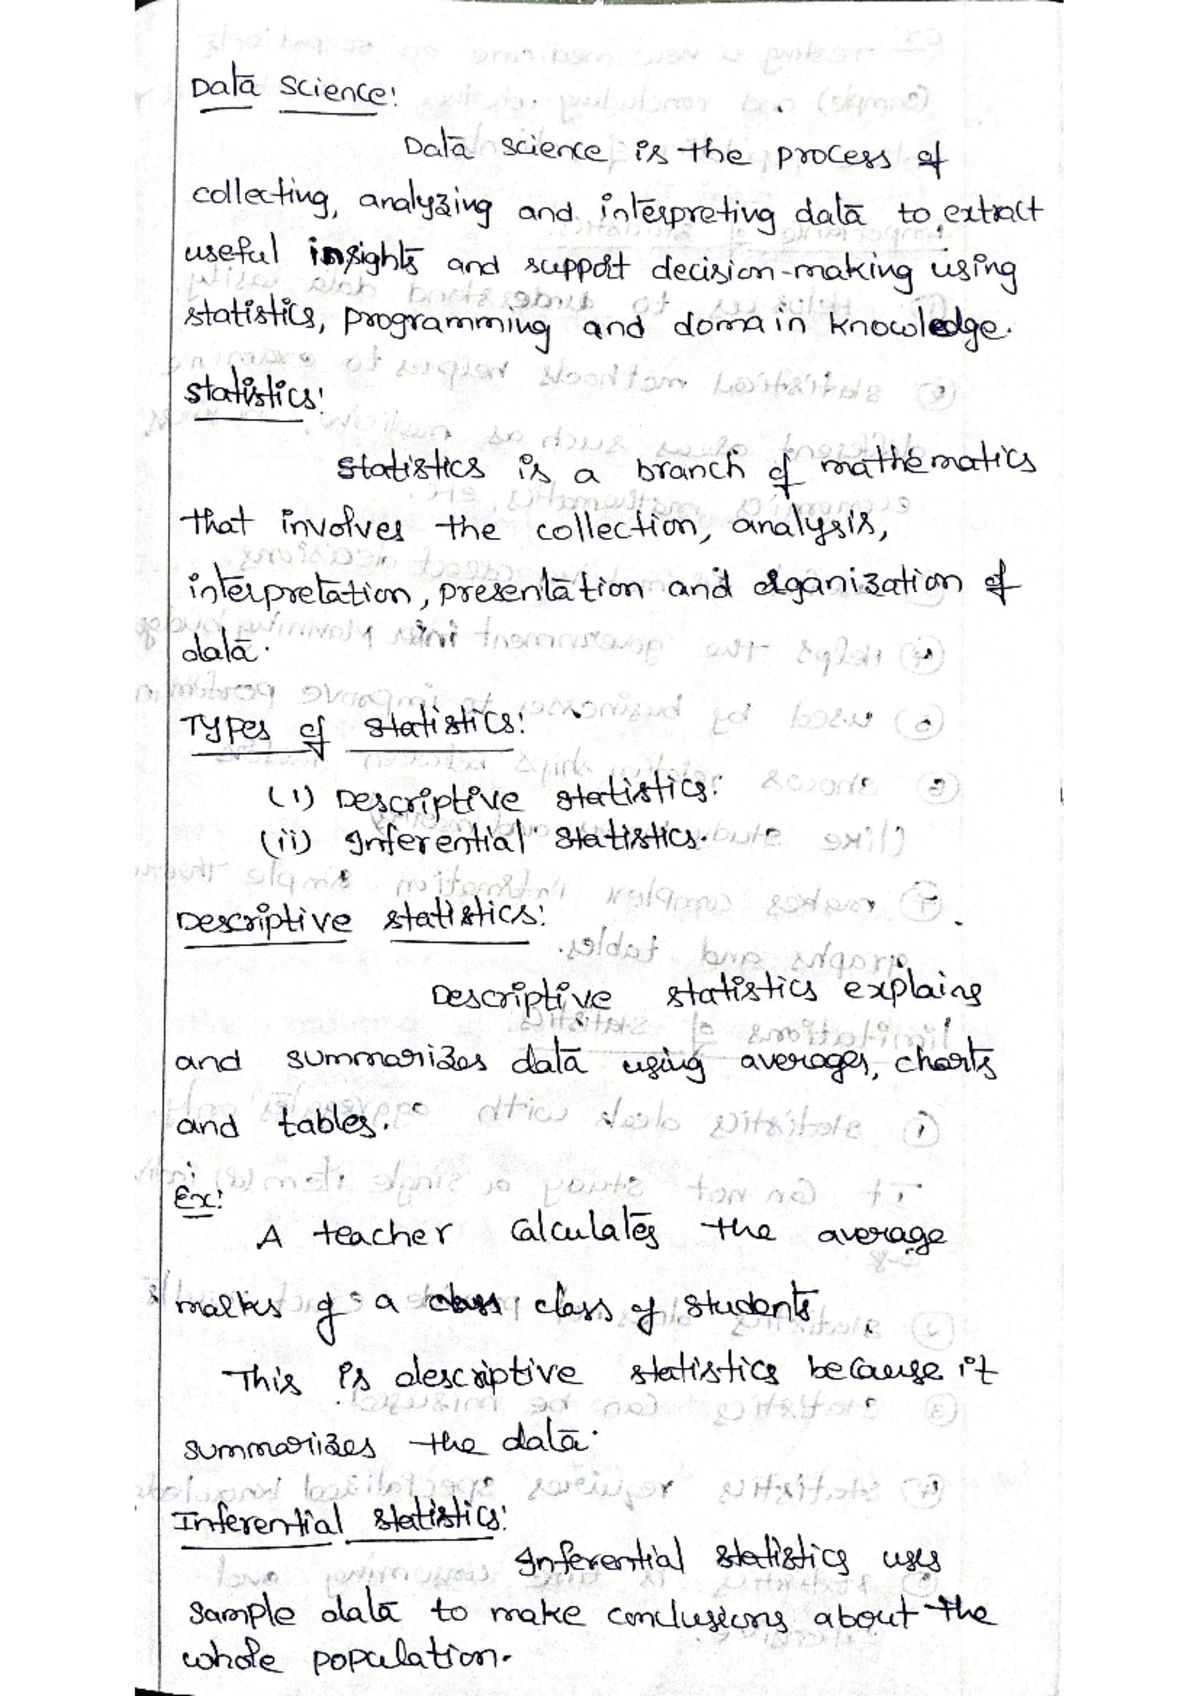 Data Science:
Data science is the process of
collecting, analyzing and interpreting data to extract
useful insights and support decision-making using
statistics, programming and domain knowledge.
Statistics:
Statistics is a branch of mathematics
that involves the collection, analysis,
interpretation, presentation and organization of
data.
Types of Statistics:
(i) Descriptive statistics:
(ii) Inferential statistics.
Descriptive statistics:
Descriptive statistics explains
and summarizes data using averages, charts
and tables.
Ex:
A teacher calculates the average
marks of a class of students
This is descriptive statistics because it
summarizes the data.
Inferential statistics:
Inferential statistics uses
sample data to make conclusions about the
whole population.